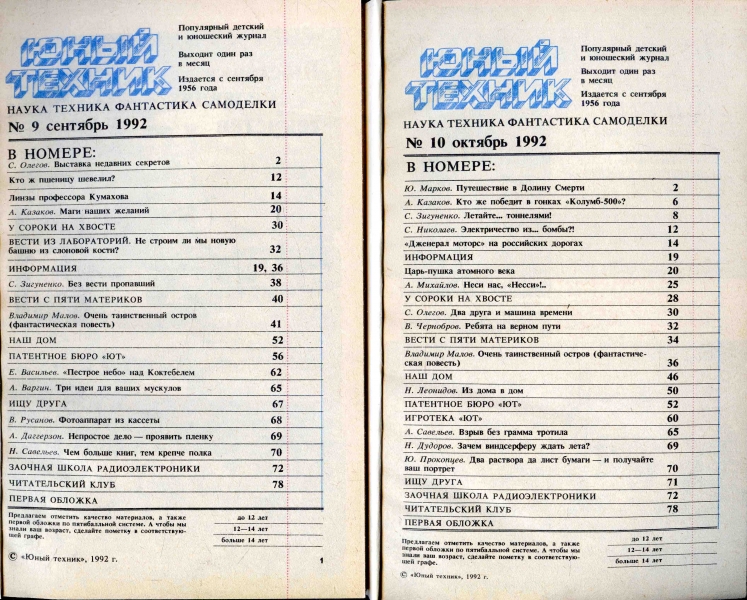 ЮНЫЙ
ТЕХНИК
Популярный детский
и юношеский журнал
Выходит один раз
в месяц
Издается с сентября
1956 года
НАУКА ТЕХНИКА ФАНТАСТИКА САМОДЕЛКИ
№ 9 сентябрь 1992
В НОМЕРЕ:
С. Олегов. Выставка недавних секретов 2
Кто ж пшеницу шевелил? 12
Линзы профессора Кумахова 14
А. Казаков. Маги наших желаний 20
У СОРОКИ НА ХВОСТЕ 30
ВЕСТИ ИЗ ЛАБОРАТОРИЙ. Не строим ли мы новую
башню из слоновой кости? 32
ИНФОРМАЦИЯ 19, 36
С. Зигуненко. Без вести пропавший 38
ВЕСТИ С ПЯТИ МАТЕРИКОВ 40
Владимир Малов. Очень таинственный остров
(фантастическая повесть) 41
НАШ ДОМ 52
ПАТЕНТНОЕ БЮРО «ЮТ» 56
Е. Васильев. «Пестрое небо» над Коктебелем 62
А. Варгин. Три идеи для ваших мускулов 65
ИЩУ ДРУГА 67
В. Русанов. Фотоаппарат из кассеты 68
А. Даггерзон. Непростое дело — проявить пленку 69
Н. Савельев. Чем больше книг, тем крепче полка 70
ЗАОЧНАЯ ШКОЛА РАДИОЭЛЕКТРОНИКИ 72
ЧИТАТЕЛЬСКИЙ КЛУБ 78
ПЕРВАЯ ОБЛОЖКА
Предлагаем отметить качество материалов, а также
первой обложки по пятибалльной системе. А чтобы мы
знали ваш возраст, сделайте пометку в соответствую-
щей графе.
до 12 лет
12—14 лет
больше 14 лет
© «Юный техник», 1992 г.
1
ЮНЫЙ
ТЕХНИК
Популярный детский
и юношеский журнал
Выходит один раз
в месяц
Издается с сентября
1956 года
НАУКА ТЕХНИКА ФАНТАСТИКА САМОДЕЛКИ
№ 10 октябрь 1992
В НОМЕРЕ:
Ю. Марков. Путешествие в Долину Смерти 2
А. Казаков. Кто же победит в гонках «Колумб-500»? 6
С. Зигуненко. Летайте... тоннелями! 8
С. Николаев. Электричество из... бомбы?! 12
«Дженерал моторс» на российских дорогах 14
ИНФОРМАЦИЯ 19
Царь-пушка атомного века 20
А. Михайлов. Неси нас, «Несси»!.. 25
У СОРОКИ НА ХВОСТЕ 28
С. Олегов. Два друга и машина времени 30
В. Чернобров. Ребята на верном пути 32
ВЕСТИ С ПЯТИ МАТЕРИКОВ 34
Владимир Малов. Очень таинственный остров (фантастиче-
ская повесть) 36
НАШ ДОМ 46
Н. Леонидов. Из дома в дом 50
ПАТЕНТНОЕ БЮРО «ЮТ» 52
ИГРОТЕКА «ЮТ» 60
А. Савельев. Взрыв без грамма тротила 65
Н. Дудоров. Зачем виндсерферу ждать лета? 69
Ю. Прокопцев. Два раствора да лист бумаги — и получайте
ваш портрет 70
ИЩУ ДРУГА 71
ЗАОЧНАЯ ШКОЛА РАДИОЭЛЕКТРОНИКИ 72
ЧИТАТЕЛЬСКИЙ КЛУБ 78
ПЕРВАЯ ОБЛОЖКА
Предлагаем отметить качество материалов, а также
первой обложки по пятибалльной системе. А чтобы мы
знали ваш возраст, сделайте пометку в соответствую-
щей графе.
до 12 лет
12—14 лет
больше 14 лет
© «Юный техник», 1992 г.